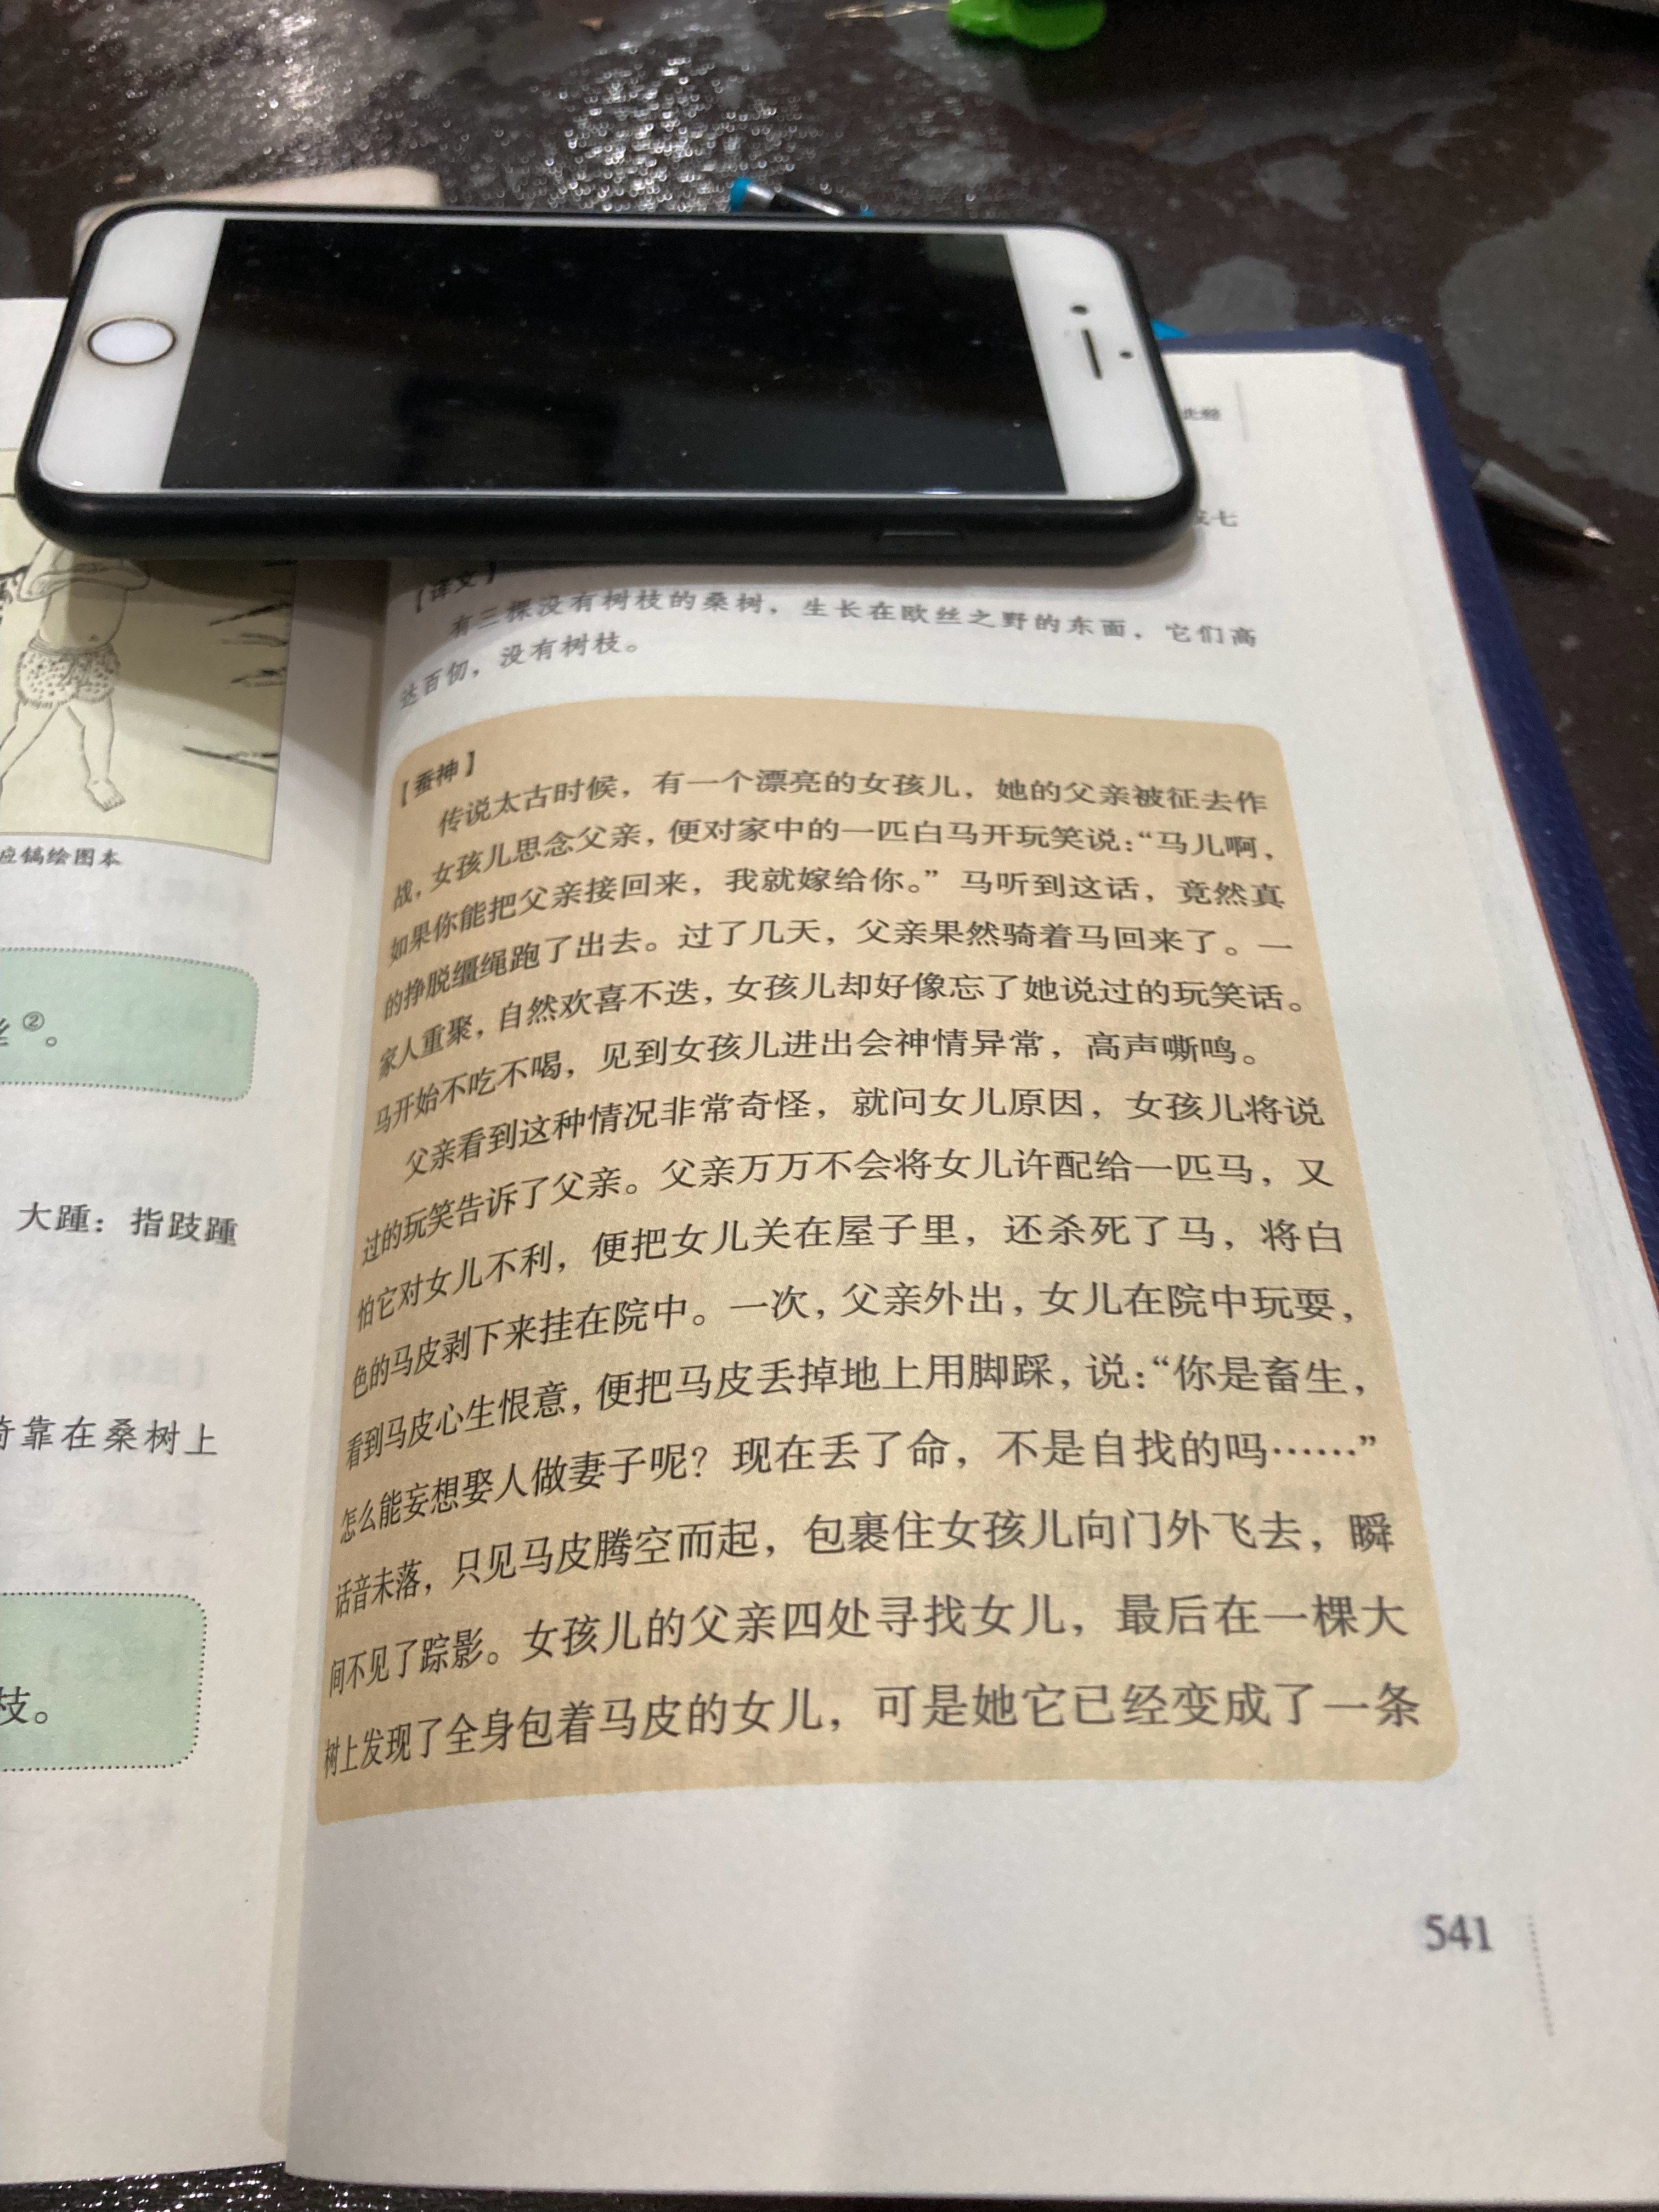 应镐绘图本
丝②。
大踵：指跂踵
倚靠在桑树上
枝。
北经
成七
【译文】
有三棵没有树枝的桑树，生长在欧丝之野的东面，它们高
达百仞，没有树枝。
【蚕神】
传说太古时候，有一个漂亮的女孩儿，她的父亲被征去作
战，女孩儿思念父亲，便对家中的一匹白马开玩笑说：“马儿啊，
如果你能把父亲接回来，我就嫁给你。”马听到这话，竟然真
的挣脱缰绳跑了出去。过了几天，父亲果然骑着马回来了。一
家人重聚，自然欢喜不迭，女孩儿却好像忘了她说过的玩笑话。
马开始不吃不喝，见到女孩儿进出会神情异常，高声嘶鸣。
父亲看到这种情况非常奇怪，就问女儿原因，女孩儿将说
过的玩笑告诉了父亲。父亲万万不会将女儿许配给一匹马，又
怕它对女儿不利，便把女儿关在屋子里，还杀死了马，将白
色的马皮剥下来挂在院中。一次，父亲外出，女儿在院中玩耍，
看到马皮心生恨意，便把马皮丢掉地上用脚踩，说：“你是畜生，
怎么能妄想娶人做妻子呢？现在丢了命，不是自找的吗……”
话音未落，只见马皮腾空而起，包裹住女孩儿向门外飞去，瞬
间不见了踪影。女孩儿的父亲四处寻找女儿，最后在一棵大
树上发现了全身包着马皮的女儿，可是她它已经变成了一条
541